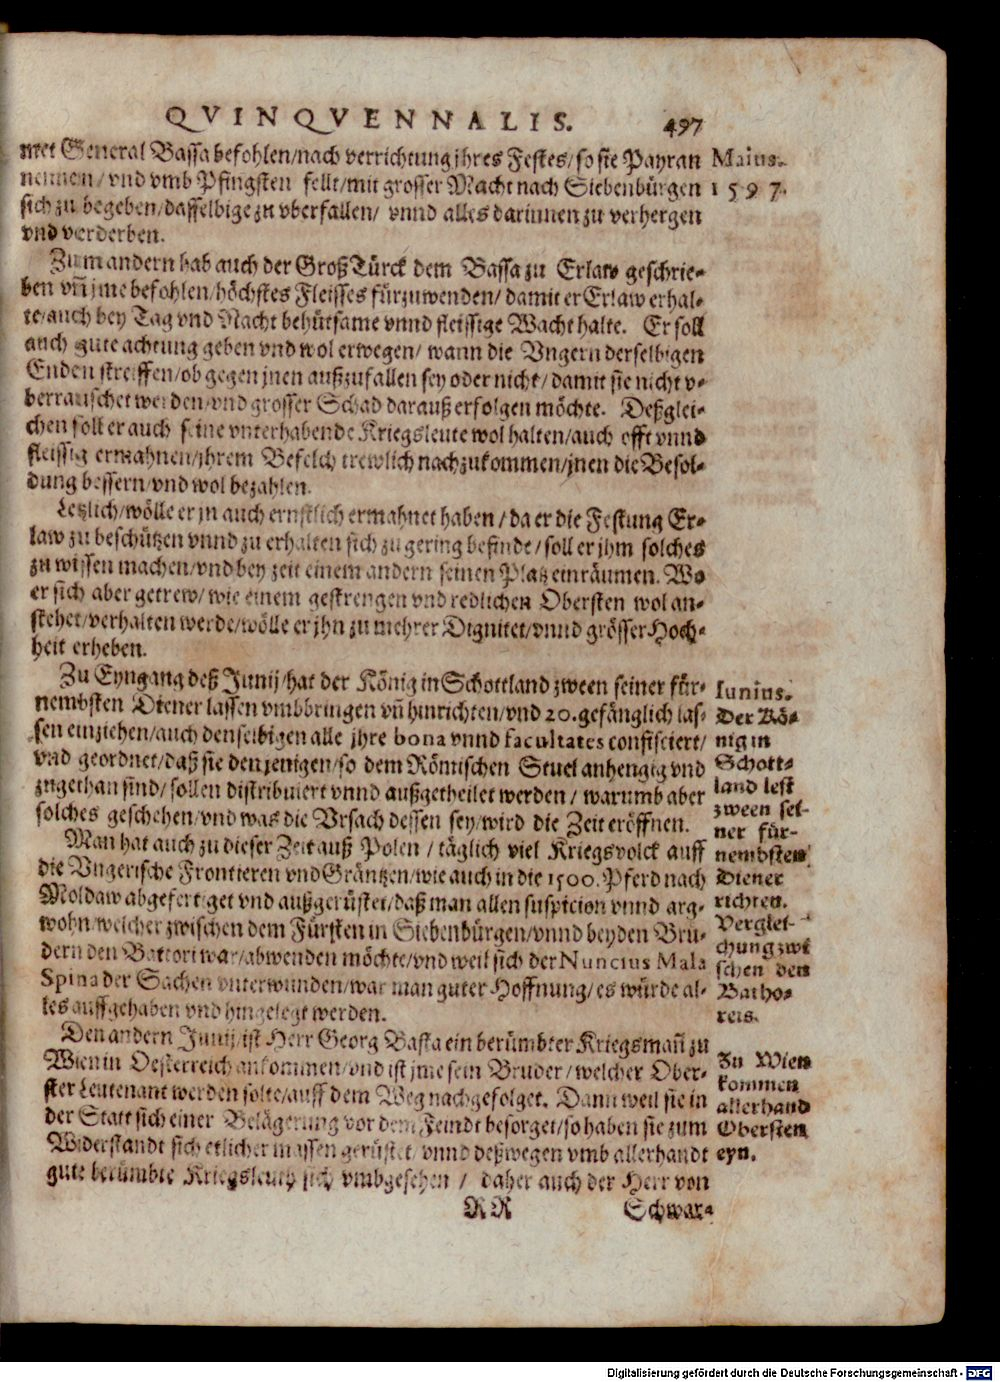 QVINQVENNALIS. 497
met General Bassa befohlen/nach verrichtung jhres Festes/so sie Payran
nennen/vnd vmb Pfingsten fellt/mit grosser Macht nach Siebenbürgen
sich zu begeben/dasselbige zu vberfallen/ vnnd alles darinnen zu verhergen
vnd verderben.
Maius.
1597.
Zum andern hab auch der Groß Türck dem Bassa zu Erlaw geschrie-
ben vñ jme befohlen/höchstes Fleisses fürzuwenden/damit er Erlaw erhal-
te/auch bey Tag vnd Nacht behütsame vnnd fleissige Wacht halte. Er soll
auch gute achtung geben vnd wol erwegen/ wann die Vngern derselbigen
Enden streiffen/ob gegen jnen außzufallen sey oder nicht/damit sie nicht v-
berrauschet werden/vnd grosser Schad darauß erfolgen möchte. Deßglei-
chen soll er auch seine vnterhabende Kriegsleute wol halten/auch offt vnnd
fleissig ermahnen/jhrem Befelch trewlich nachzukommen/jnen die Besol-
dung bessern/vnd wol bezahlen.
Letzlich/wölle er jn auch ernstlich ermahnet haben/da er die Festung Er-
law zu beschützen vnnd zu erhalten sich zu gering befinde/soll er jhm solches
zu wissen machen/vnd bey zeit einem andern seinen Platz einräumen. Wo
er sich aber getrew/wie einem gestrengen vnd redlichen Obersten wol an-
stehet/verhalten werde/wölle er jhn zu mehrer Dignitet/vnnd grösser Hoch-
heit erheben.
Zu Eyngang deß Junij/hat der König in Schottland zween seiner für-
nembsten Diener lassen vmbbringen vñ hinrichten/vnd 20. gefänglich las-
sen einziehen/auch denselbigen alle jhre bona vnnd facultates confisciert/
vnd geordnet/daß sie denjenigen/so dem Römischen Stuel anhengig vnd
zugethan sind/sollen distribuiert vnnd außgetheilet werden/ warumb aber
solches geschehen/vnd was die Vrsach dessen sey/wird die Zeit eröffnen.
Iunius.
Der Kö-
nig in
Schott-
land lest
zween sei-
ner für-
nembsten
Diener
richten.
Man hat auch zu dieser Zeit auß Polen/ täglich viel Kriegsvolck auff
die Vngerische Frontieren vnd Gräntzen/wie auch in die 1500. Pferd nach
Moldaw abgefertiget vnd außgerüstet/daß man allen suspicion vnnd arg-
wohn/welcher zwischen dem Fürsten in Siebenbürgen/vnnd beyden Brü-
dern den Battori war/abwenden möchte/vnd weil sich der Nuncius Mala
Spina der Sachen vnterwunden/war man guter Hoffnung/es würde al-
les auffgehaben vnd hingelegt werden.
Verglei-
chung zwi
schen den
Batho-
reis.
Den andern Junij/ist Herr Georg Basta ein berümbter Kriegsmañ zu
Wien in Oesterreich ankommen/vnd ist jme sein Bruder/welcher Ober-
ster Leutenant werden solte/auff dem Weg nachgefolget. Dann weil sie in
der Statt sich einer Belägerung vor dem Feindt besorget/so haben sie zum
Widerstandt sich etlicher massen gerüstet/vnnd deßwegen vmb allerhandt
gute berümbte Kriegsleute sich vmbgesehen/ daher auch der Herr von
Zu Wien
kommen
allerhand
Obersten
eyn.
RR Schwar-
Digitalisierung gefördert durch die Deutsche Forschungsgemeinschaft - DFG